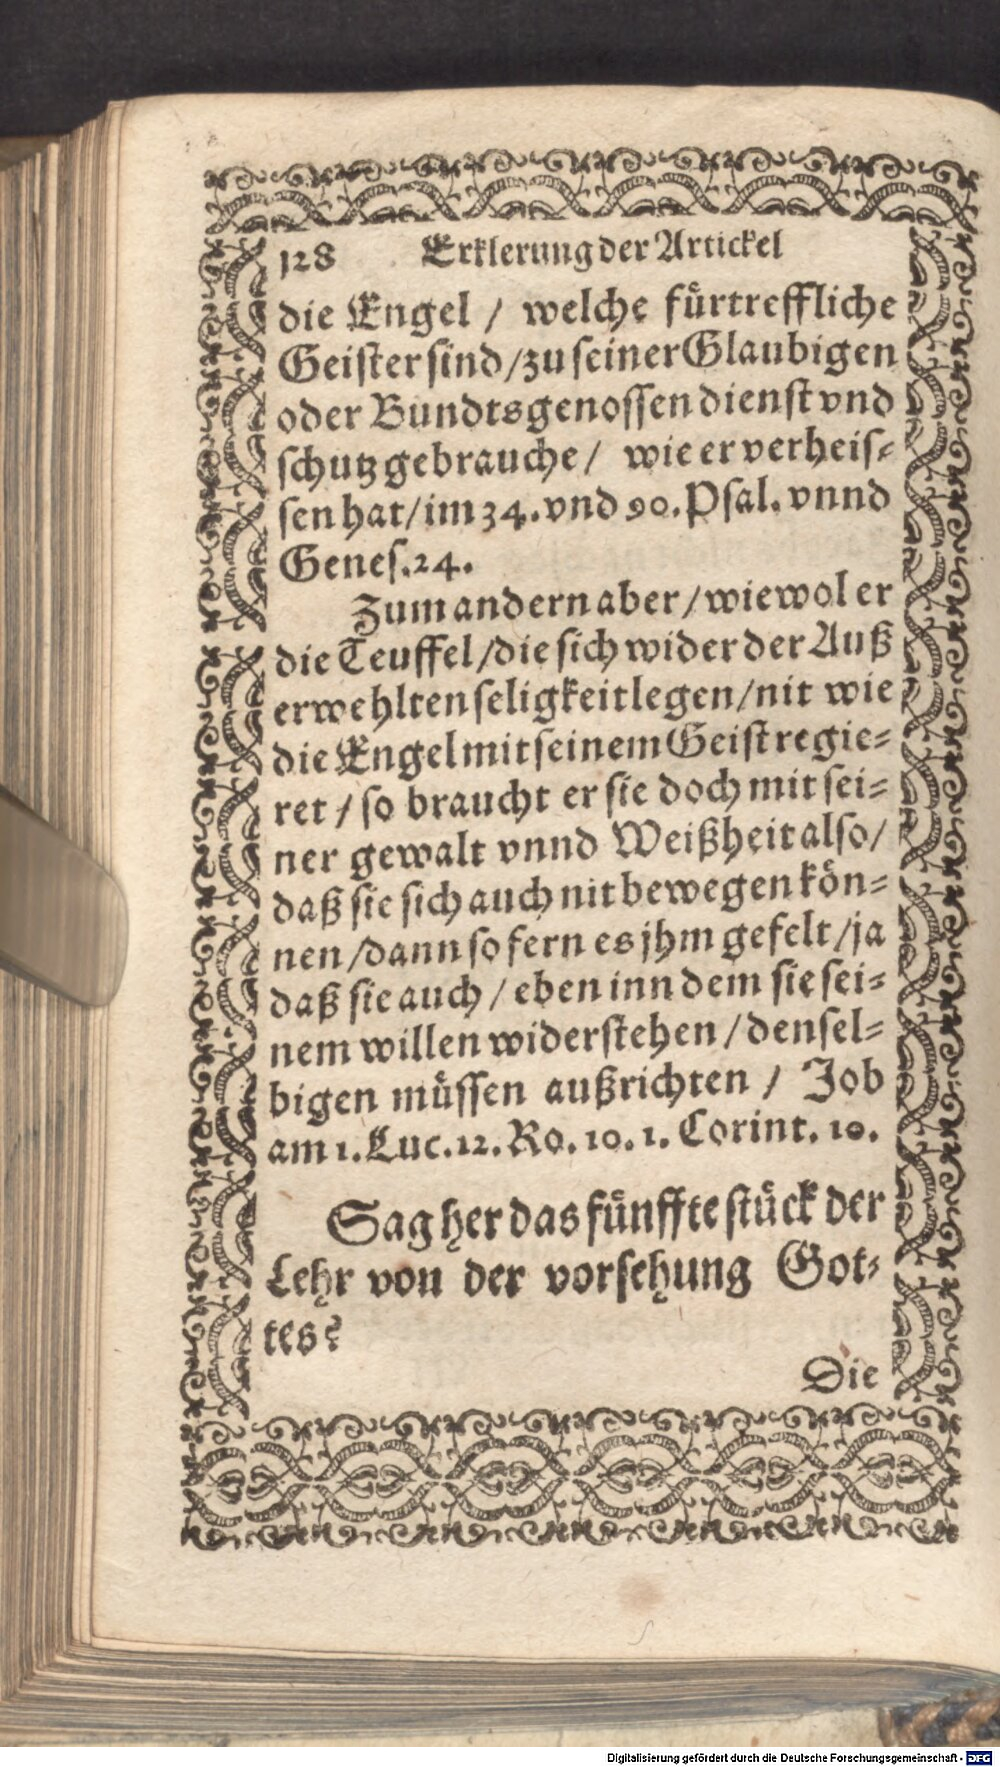 128 Erklerung der Artickel
die Engel / welche fürtreffliche
Geister sind / zu seiner Glaubigen
oder Bundtsgenossen dienst vnd
schutz gebrauche / wie er verheis-
sen hat / im 34. vnd 90. Psal. vnnd
Genes. 24.
Zum andern aber / wiewol er
die Teuffel / die sich wider der Auß
erwehlten seligkeit legen / nit wie
die Engel mit seinem Geist regie-
ret / so braucht er sie doch mit sei-
ner gewalt vnnd Weißheit also /
daß sie sich auch nit bewegen kön-
nen / dann so fern es jhm gefelt / ja
daß sie auch / eben inn dem sie sei-
nem willen widerstehen / densel-
bigen müssen außrichten / Job
am 1. Luc. 12. Ro. 10. 1. Corint. 10.
Sag her das fünffte stück der
Lehr von der vorsehung Got-
tes?
Die
Digitalisierung gefördert durch die Deutsche Forschungsgemeinschaft - DFG